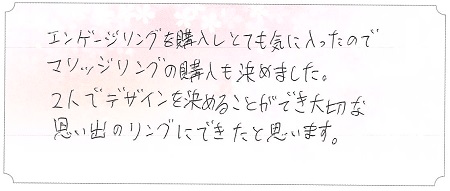 エンゲージリングを購入しとても気に入ったので
マリッジリングの購入も決めました。
2人でデザインを決めることができ大切な
思い出のリングにできたと思います。